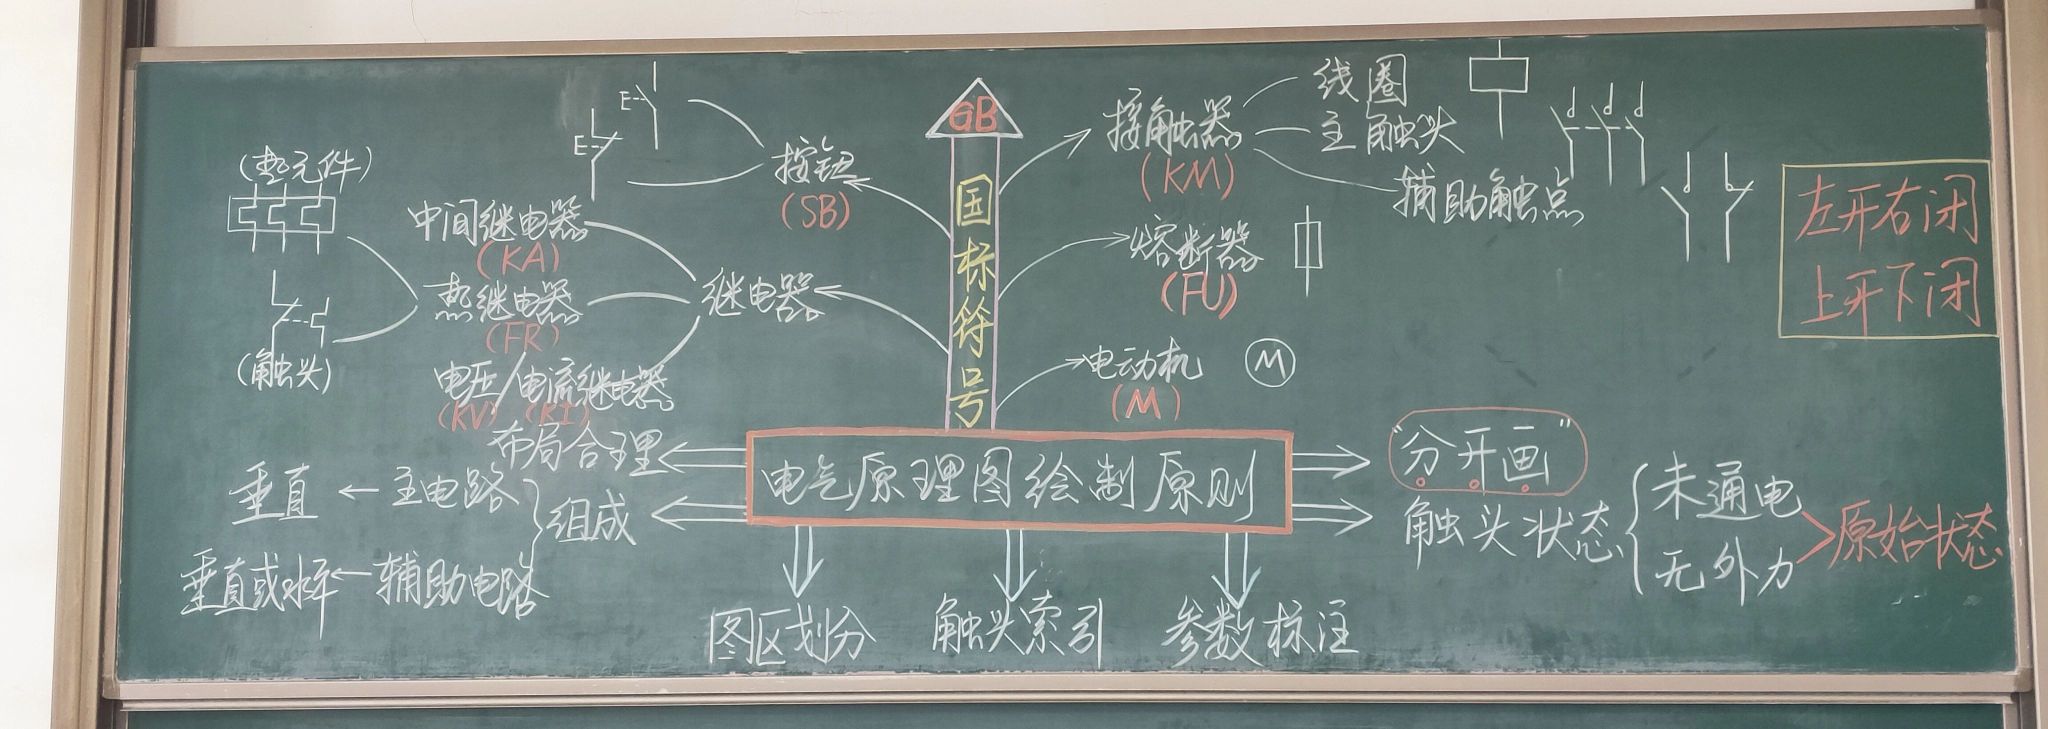 GB
国标符号
(热元件)
(触头)
中间继电器
(KA)
热继电器
(FR)
电压/电流继电器
(KV) (KI)
继电器
按钮
(SB)
E
E
接触器
(KM)
线圈
主触头
辅助触点
熔断器
(FU)
电动机
(M)
M
左开右闭
上开下闭
电气原理图绘制原则
布局合理
组成
主电路
垂直
辅助电路
垂直或水平
图区划分
触头索引
参数标注
"分开画"
触头状态
未通电
无外力
原始状态